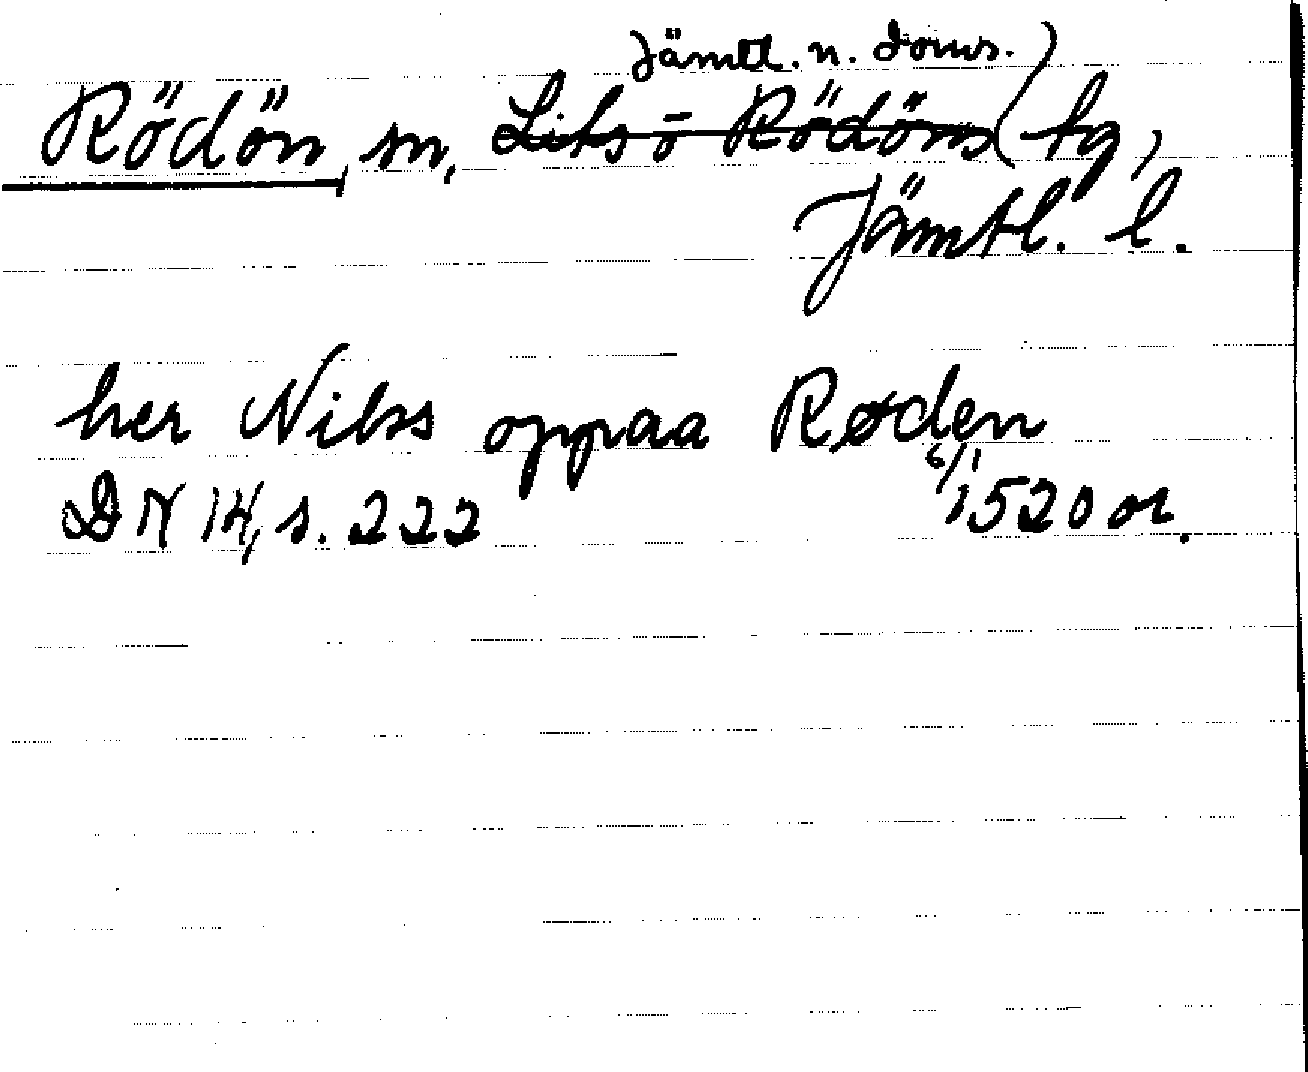 Jämtl. n. doms.
Rödön, sn, Lits o Rödöns tg,
Jämtl. l.
her Nilss oppaa Røden
DN 14, s. 222 6/1 1520 or.